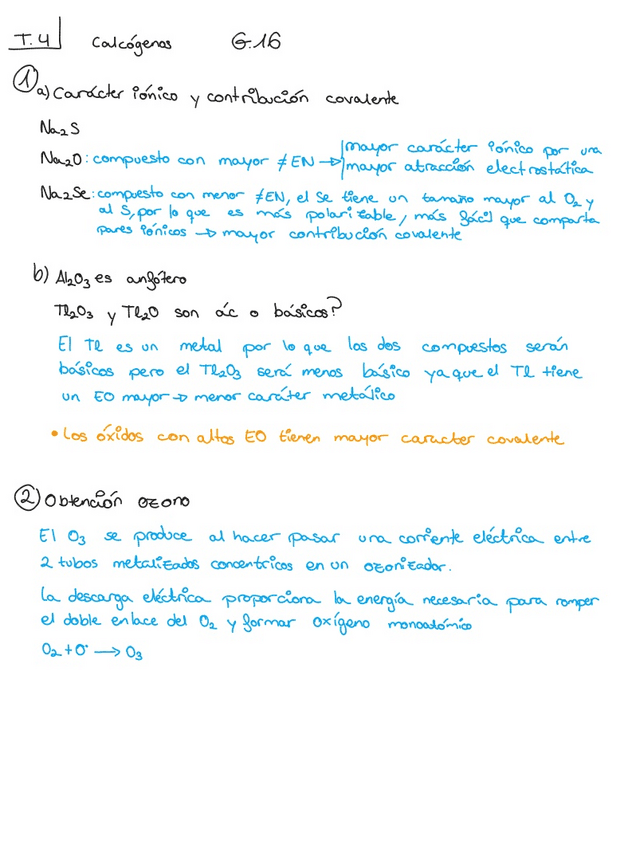 T.4 Calcógenos G.16
① a) Carácter iónico y contribución covalente
Na₂S
Na₂O: compuesto con mayor ≠ EN → mayor carácter iónico por una
mayor atracción electrostática
Na₂Se: compuesto con menor ≠EN, el Se tiene un tamaño mayor al O₂ y
al S, por lo que es más polarizable, más fácil que comparta
pares iónicos → mayor contribución covalente
b) Al₂O₃ es anfótero
Tl₂O₃ y Tl₂O son ác o básicos?
El Tl es un metal por lo que los dos compuestos serán
básicos pero el Tl₂O₃ será menos básico ya que el Tl tiene
un EO mayor → menor caráter metálico
• Los óxidos con altos EO tienen mayor caracter covalente
② Obtención ozono
El O₃ se produce al hacer pasar una corriente eléctrica entre
2 tubos metalizados concentricos en un ozonizador.
La descarga eléctrica proporciona la energía necesaria para romper
el doble enlace del O₂ y formar oxígeno monoatómico
O₂ + O· → O₃